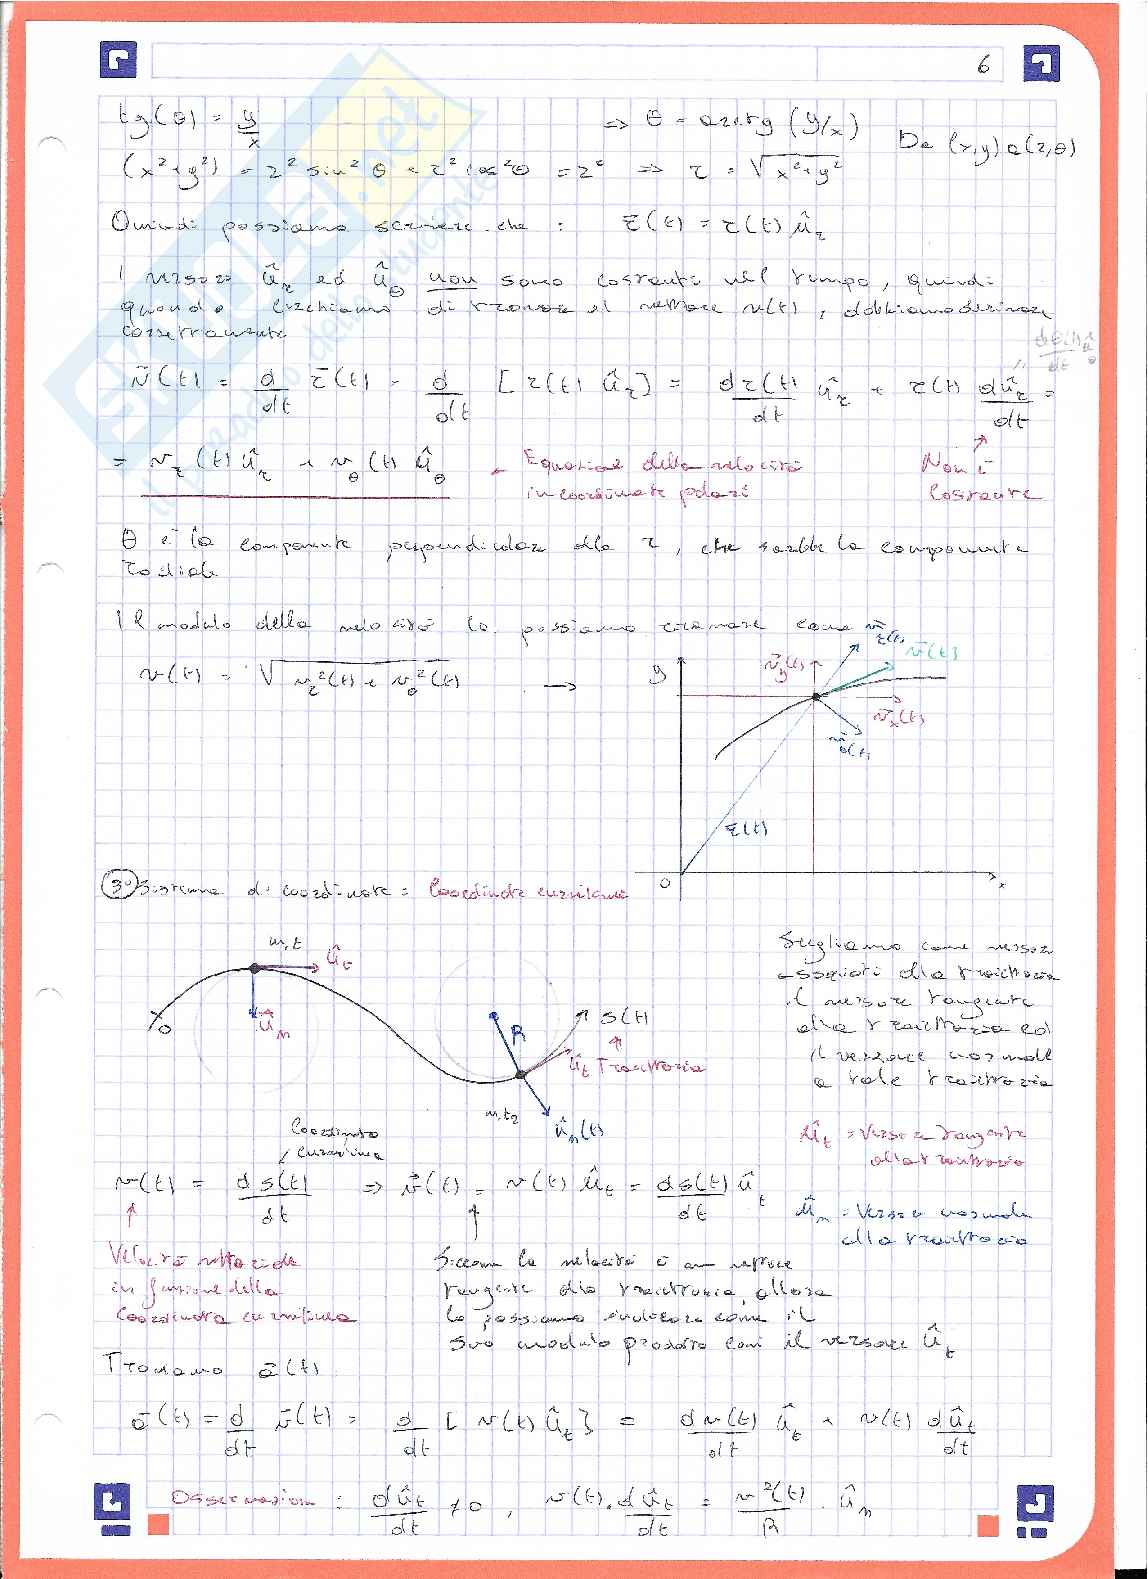 6
tg(θ) = y/x ⇒ θ = arctg (y/x) Da (x,y) a (r,θ)
(x²+y²) = r² sin² θ + r² cos² θ = r² ⇒ r = √x²+y²
Quindi possiamo scrivere che : r̄(t) = r(t) û_r
I versori û_r ed û_θ non sono costanti nel tempo, quindi
quando cerchiamo di trovare il vettore v(t), dobbiamo derivare
correttamente
dθ(t)/dt û_θ
v̄(t) = d/dt r̄(t) = d/dt [r(t) û_r] = dr(t)/dt û_r + r(t) dû_r/dt =
= v_r(t) û_r + v_θ(t) û_θ - Equazione della velocità
in coordinate polari
Non è
costante
θ è la componente perpendicolare alla r, che sarebbe la componente
radiale
Il modulo della velocità lo possiamo ricavare come
v(t) = √v_r²(t) + v_θ²(t) →
y
v̄_y(t)
v̄_r(t)
v̄(t)
v̄_x(t)
v̄_θ(t)
r̄(t)
O
x
3° Sistema di coordinate = Coordinate curvilinee
m,t
û_t
û_n
O
R
s(t)
û_t Traiettoria
m,t₂
û_n(t)
Scegliamo come versori
associati alla traiettoria
il versore tangente
alla traiettoria ed
il versore normale
a tale traiettoria
û_t = versore tangente
alla traiettoria
û_n = versore normale
alla traiettoria
Coordinata
curvilinea
v(t) = ds(t)/dt ⇒ v̄(t) = v(t) û_t = ds(t)/dt û_t
Velocità vettoriale
in funzione della
coordinata curvilinea
Siccome la velocità è un vettore
tangente alla traiettoria, allora
lo possiamo indicare come il
suo modulo prodotto con il versore û_t
Troviamo ā(t)
ā(t) = d/dt v̄(t) = d/dt [v(t) û_t] = dv(t)/dt û_t + v(t) dû_t/dt
Osservazioni : dû_t/dt ≠ 0, v(t) · dû_t/dt = v²(t)/R · û_n